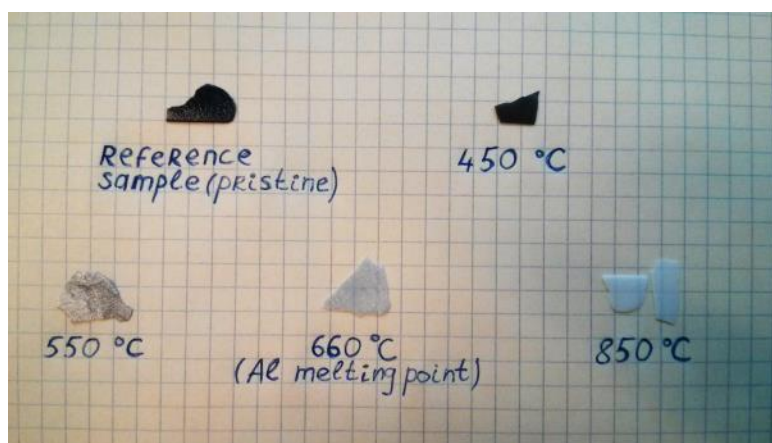 Reference
sample (pristine)
450 °C
550 °C
660 °C
(Al melting point)
850 °C